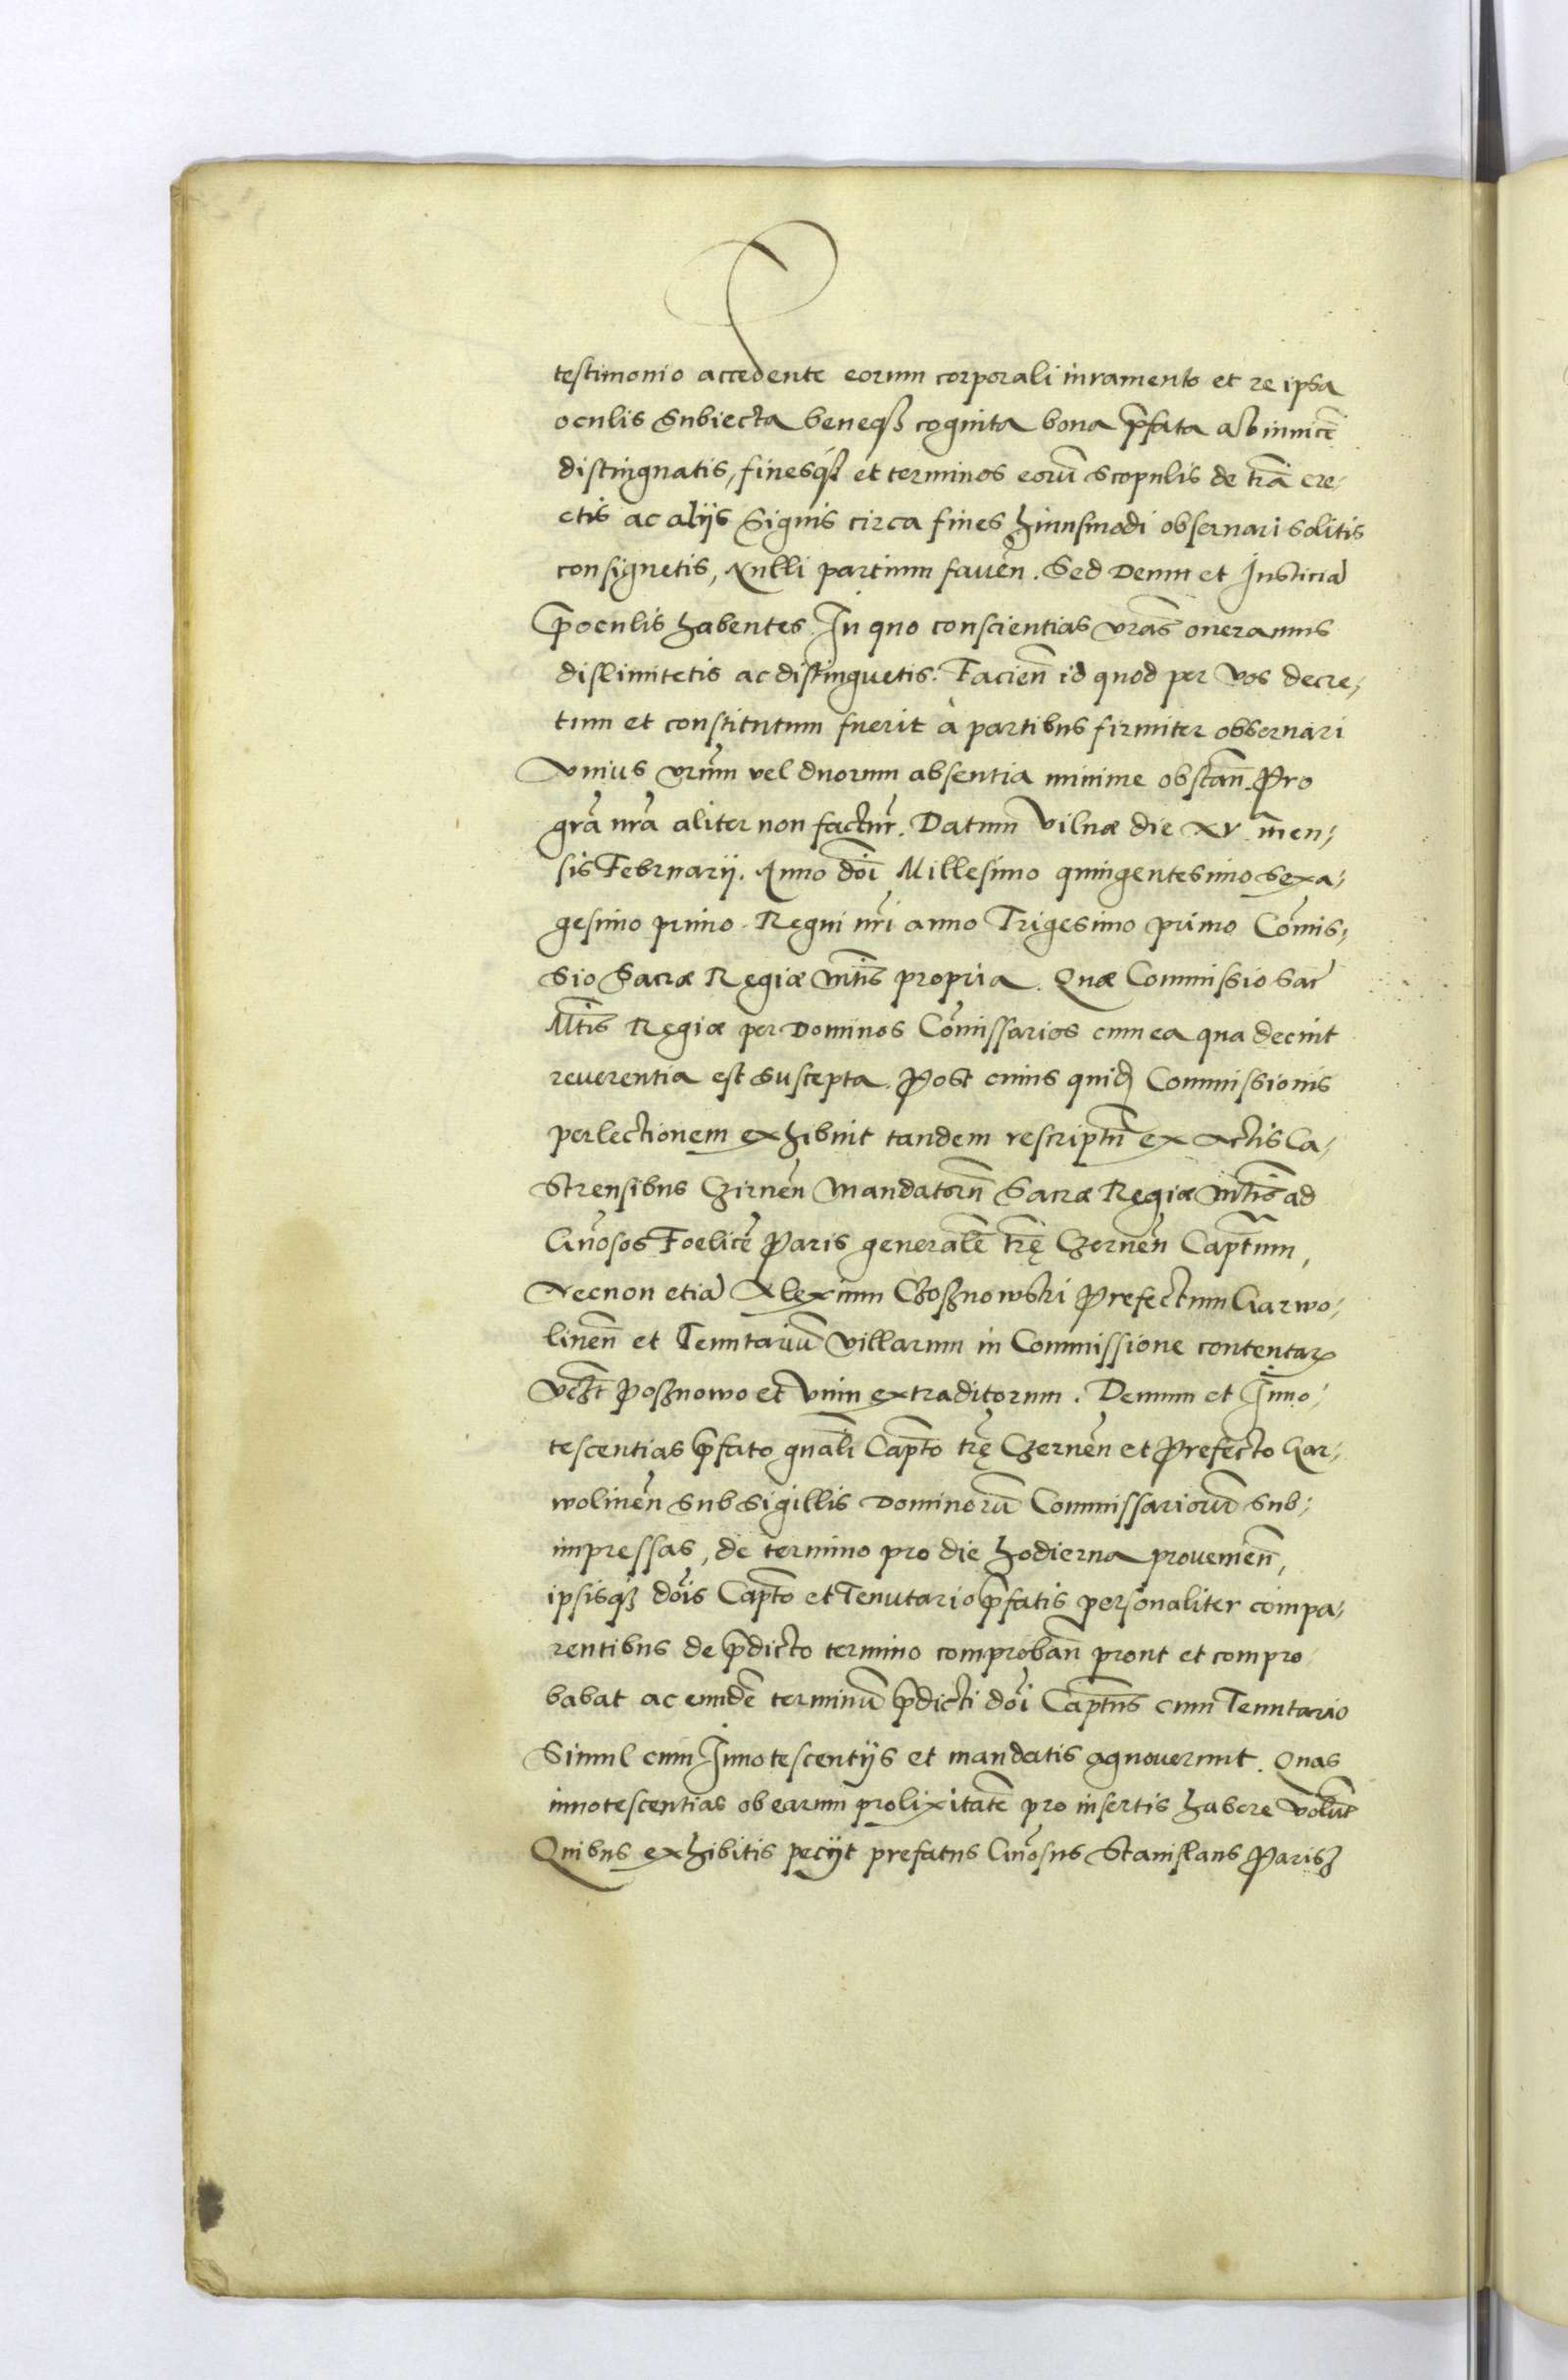 testimonio accedente eorum corporali iuramento et re ipsa
oculis subiecta beneqȝ cognita bona p̄fata ab inuicē
distinguatis, finesqȝ et terminos eorū scopulis de trā ere,
ctis ac alijs signis circa fines huiusmodi obseruari solitis
consignetis, Nulli partium faueñ. Sed Deum et Iusticiā
p̄ oculis habentes. In quo conscientias vrās oneramus
dislimitetis ac distinguetis. Facieñ id quod per vos decre,
tum et constitutum fuerit à partibus firmiter obseruari
Vnius vrūm vel duorum absentia minime obstañ. Pro
grā nrā aliter non facturi. Datum Vilnæ die XV men,
sis Februarij. Anno dōi Millesimo quingentesimo sexa,
gesimo primo. Regni nr̄i anno Trigesimo primo Cōmis,
sio Sacræ Regiæ Mtis propria. Quæ Commissio Sac̄
Mtis Regiæ per Dominos Cōmissarios cum ea qua decuit
reuerentia est suscepta. Post cuius quid̄ Commissionis
perlectionem exhibuit tandem rescriptū ex Actis Ca,
strensibus Czirneñ Mandatorū Sacræ Regiæ Mtis ad
Gñosos Foelicē Paris generalē trę Czerneñ Captum,
Necnon etiā Alexium Choßnowski Prefectum Garwo,
lineñ et Tenutariū villarum in Commissione contentarꝫ
Vczt Poßnowo et Vnin extraditorum. Demum et Inno,
tescentias p̄fato gnāli Capto trę Czerneñ et Prefecto Gar,
wolineñ sub sigillis Dominorū Commissariorū sub,
impressas, de termino pro die hodierna proueneñ,
ipsisqȝ dōis Capto et Tenutario p̄fatis personaliter compa,
rentibus de p̄dicto termino comprobañ prout et compro,
babat ac eundē terminū p̄dicti dōi Captus cum Tenutario
Simul cum Innotescentijs et mandatis agnouerunt. Quas
innotescentias ob earum prolixitatē pro insertis habere volūt
Quibus exhibitis pecijt prefatus Gñosus Stanislaus Parisȝ